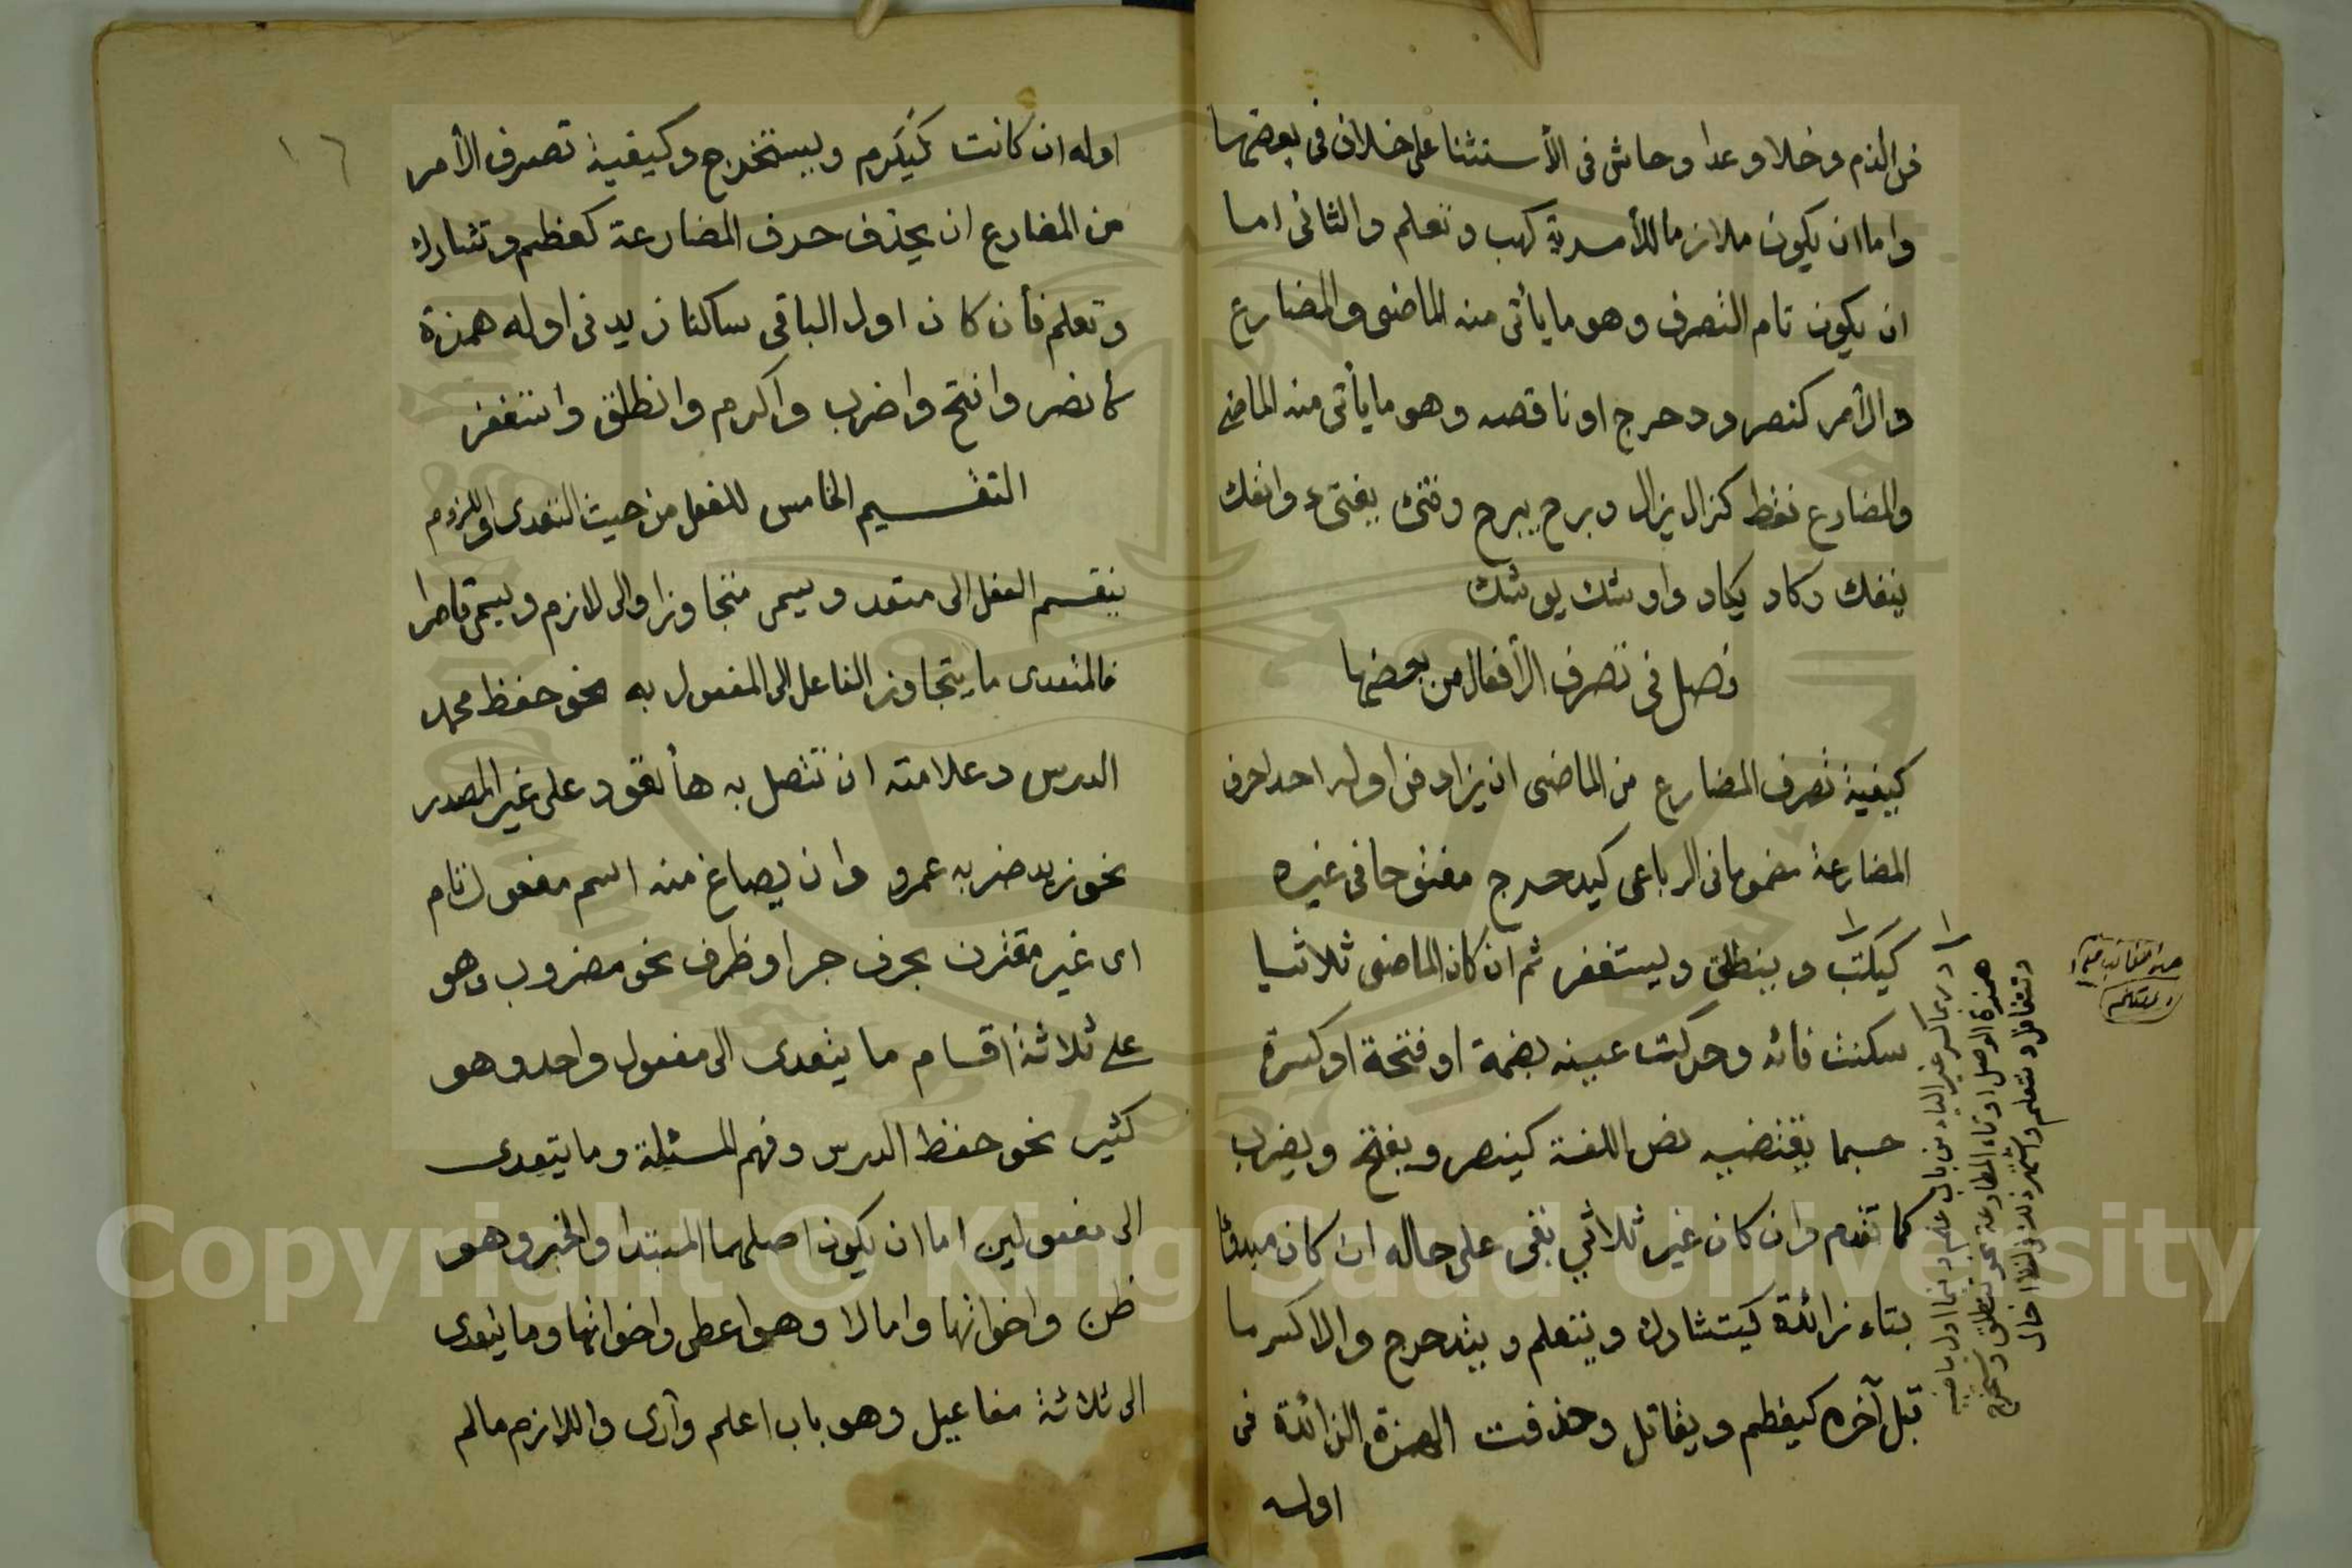 فى الذم وخلا وعدا وحاش فى الأستثنا على خلاف فى بعضها
واما ان يكون ملازما للأمرية كهب وتعلم والثانى اما
ان يكون تام التصرف وهو ما يأتى منه الماضى والمضارع
والأمر كنصر ودحرج او ناقصه وهو ما يأتى منه الماضى
والمضارع فقط كزال يزال وبرح يبرح وفتئ يفتىء وانفك
ينفك وكاد يكاد واوشك يوشك
فصل فى تصرف الأفعال من بعضها
كيفية تصرف المضارع من الماضى ان يزاد فى اوله احد احرف
المضارعة مضموما فى الرباعى كيدحرج مفتوحا فى غيره
كيكتب وينطلق ويستغفر ثم ان كان الماضى ثلاثيا
سكنت فائه وحركت عينه بضمة او فتحة او كسرة
حسبما يقتضيه نص اللغة كينصر ويفتح ويضرب
كما تقدم وان كان غير ثلاثي بقى على حاله ان كان مبدؤا
بتاء زائدة كيتشارك ويتعلم ويتدحرج والا كسر ما
قبل آخره كيعظم ويقاتل وحذفت الهمزة الزائدة فى
اوله
وربما كسر غير الياء من باب علم وفيما اول ماضيه
همزة الوصل او تاء المطاوعة نحو تنطلق وتستخرج
وتتغافل وتتعلم
١٦
اوله ان كانت كيكرم ويستخرج وكيفية تصرف الأمر
من المضارع ان يحذف حرف المضارعة كعظم وتشارك
وتعلم فأن كان اول الباقى ساكنا زيد فى اوله همزة
كأنصر وافتح واضرب واكرم وانطلق واستغفر
التقسيم الخامس للفعل من حيث التعدى واللزوم
ينقسم الفعل الى متعد ويسمى متجاوزا والى لازم ويسمى قاصرا
فالمتعدى ما يتجاوز الفاعل الى المفعول به نحو حفظ محمد
الدرس وعلامته ان تتصل به هأ تعود على غير المصدر
نحو زيد ضربه عمرو وان يصاغ منه اسم مفعول تام
اى غير مقترن بحرف جر او ظرف نحو مضروب وهو
على ثلاثة اقسام ما يتعدى الى مفعول واحد وهو
كثير نحو حفظ الدرس وفهم المسئلة وما يتعدى
الى مفعولين اما ان يكون اصلهما المبتدا والخبر وهو
ظن واخواتها واما لا وهو اعطى واخواتها وما يتعدى
الى ثلاثة مفاعيل وهو باب اعلم وأرى واللازم مالم
Copyright © King Saud University